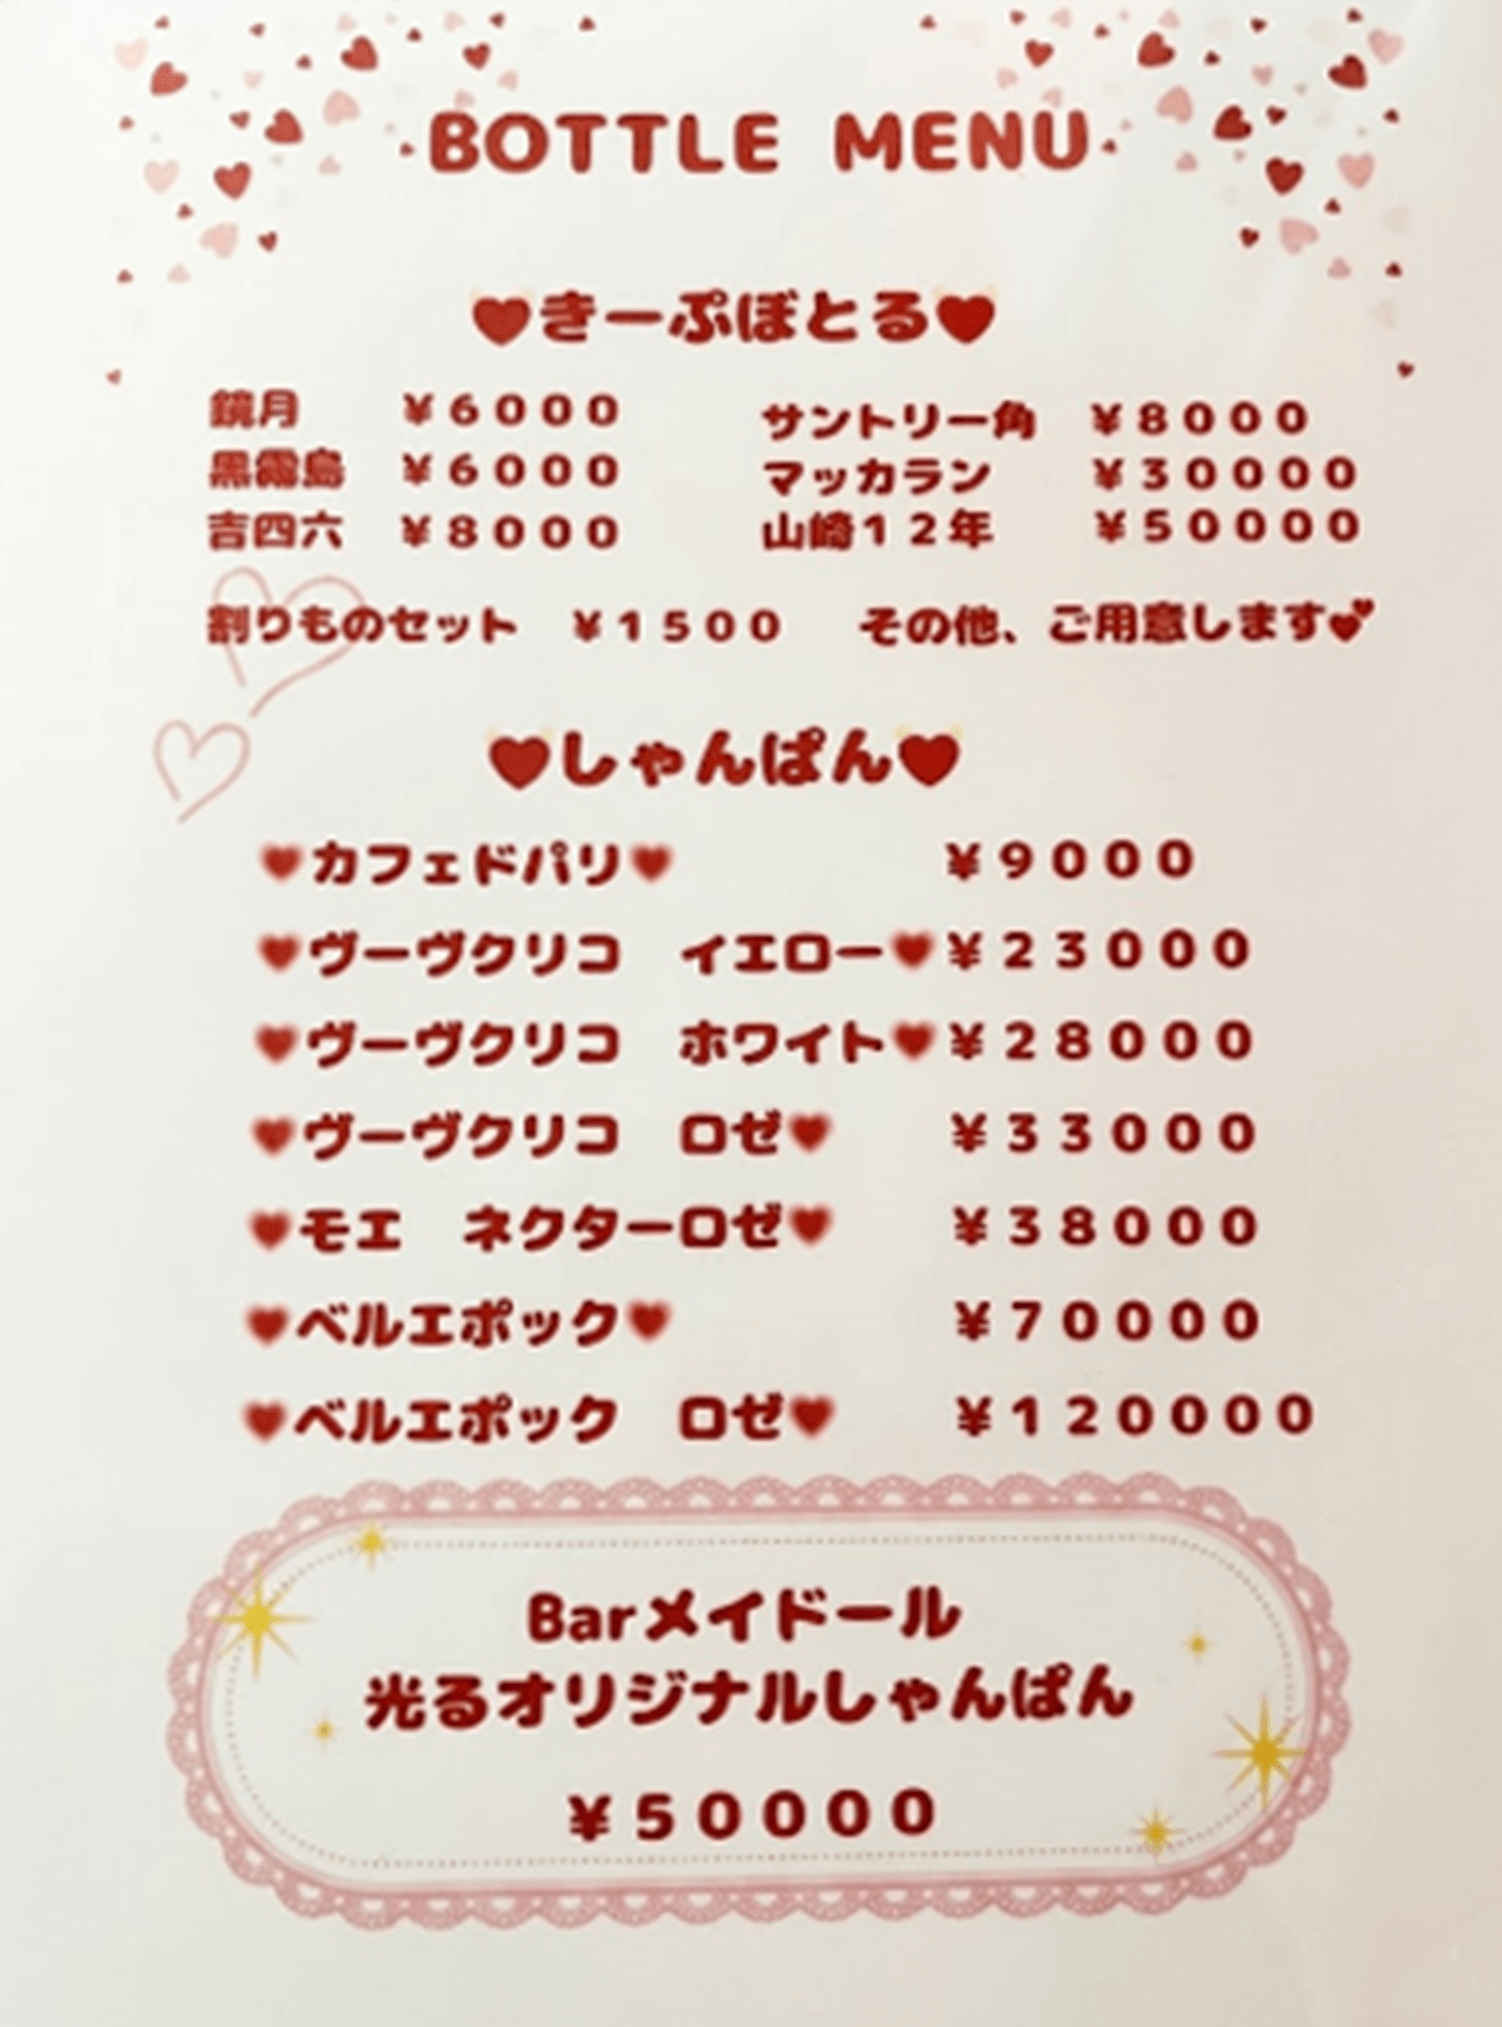 BOTTLE MENU
❤きーぷぼとる❤
鏡月 ¥6000
黒霧島 ¥6000
吉四六 ¥8000
サントリー角 ¥8000
マッカラン ¥30000
山崎12年 ¥50000
割りものセット ¥1500 その他、ご用意します💕
❤しゃんぱん❤
❤カフェドパリ❤ ¥9000
❤ヴーヴクリコ イエロー❤¥23000
❤ヴーヴクリコ ホワイト❤¥28000
❤ヴーヴクリコ ロゼ❤ ¥33000
❤モエ ネクターロゼ❤ ¥38000
❤ベルエポック❤ ¥70000
❤ベルエポック ロゼ❤ ¥120000
Barメイドール
光るオリジナルしゃんぱん
¥50000